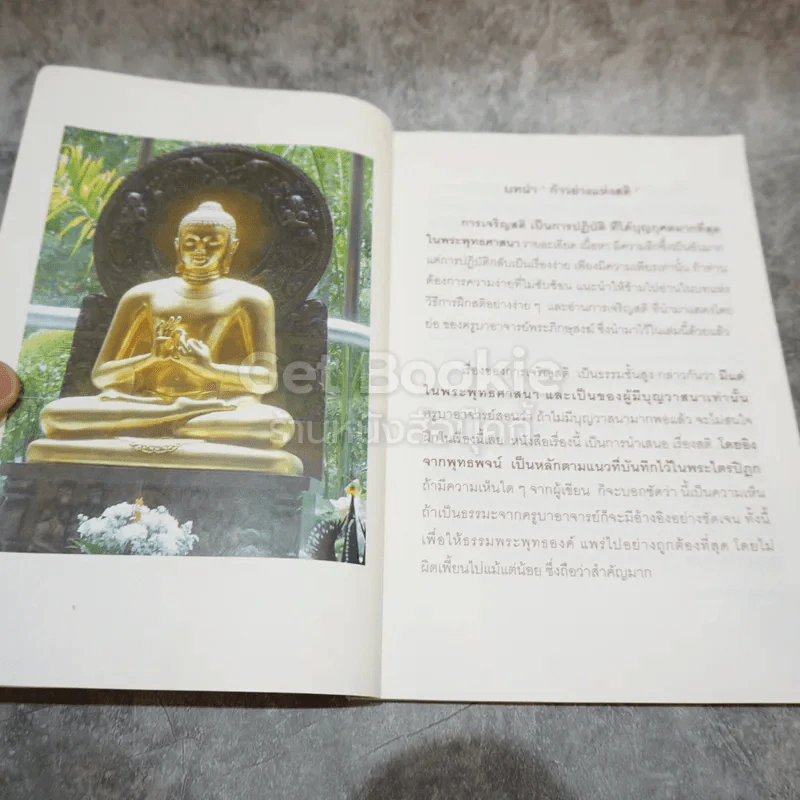 บทนำ " ก้าวย่างแห่งสติ "
การเจริญสติ เป็นการปฏิบัติ ที่ได้บุญกุศลมากที่สุด
ในพระพุทธศาสนา รายละเอียด เนื้อหา มีความลึกซึ้งเป็นอันมาก
แต่การปฏิบัติกลับเป็นเรื่องง่าย เพียงมีความเพียรเท่านั้น ถ้าท่าน
ต้องการความง่ายที่ไม่ซับซ้อน แนะนำให้ข้ามไปอ่านในบทแห่ง
วิธีการฝึกสติอย่างง่าย ๆ และอ่านการเจริญสติ ที่นำมาแสดงโดย
ย่อ ของครูบาอาจารย์พระภิกษุสงฆ์ ซึ่งนำมาไว้ในเล่มนี้ด้วยแล้ว
เรื่องของการเจริญสติ เป็นธรรมชั้นสูง กล่าวกันว่า มีแต่
ในพระพุทธศาสนา และเป็นของผู้มีบุญวาสนาเท่านั้น
ครูบาอาจารย์สอนว่า ถ้าไม่มีบุญวาสนามากพอแล้ว จะไม่สนใจ
ฝึกในเรื่องนี้เลย หนังสือเรื่องนี้ เป็นการนำเสนอ เรื่องสติ โดยอิง
จากพุทธพจน์ เป็นหลักตามแนวที่บันทึกไว้ในพระไตรปิฎก
ถ้ามีความเห็นใด ๆ จากผู้เขียน ก็จะบอกชัดว่า นี้เป็นความเห็น
ถ้าเป็นธรรมะจากครูบาอาจารย์ก็จะมีอ้างอิงอย่างชัดเจน ทั้งนี้
เพื่อให้ธรรมพระพุทธองค์ แพร่ไปอย่างถูกต้องที่สุด โดยไม่
ผิดเพี้ยนไปแม้แต่น้อย ซึ่งถือว่าสำคัญมาก
Get Bookie
ร้านหนังสือบุคกี้